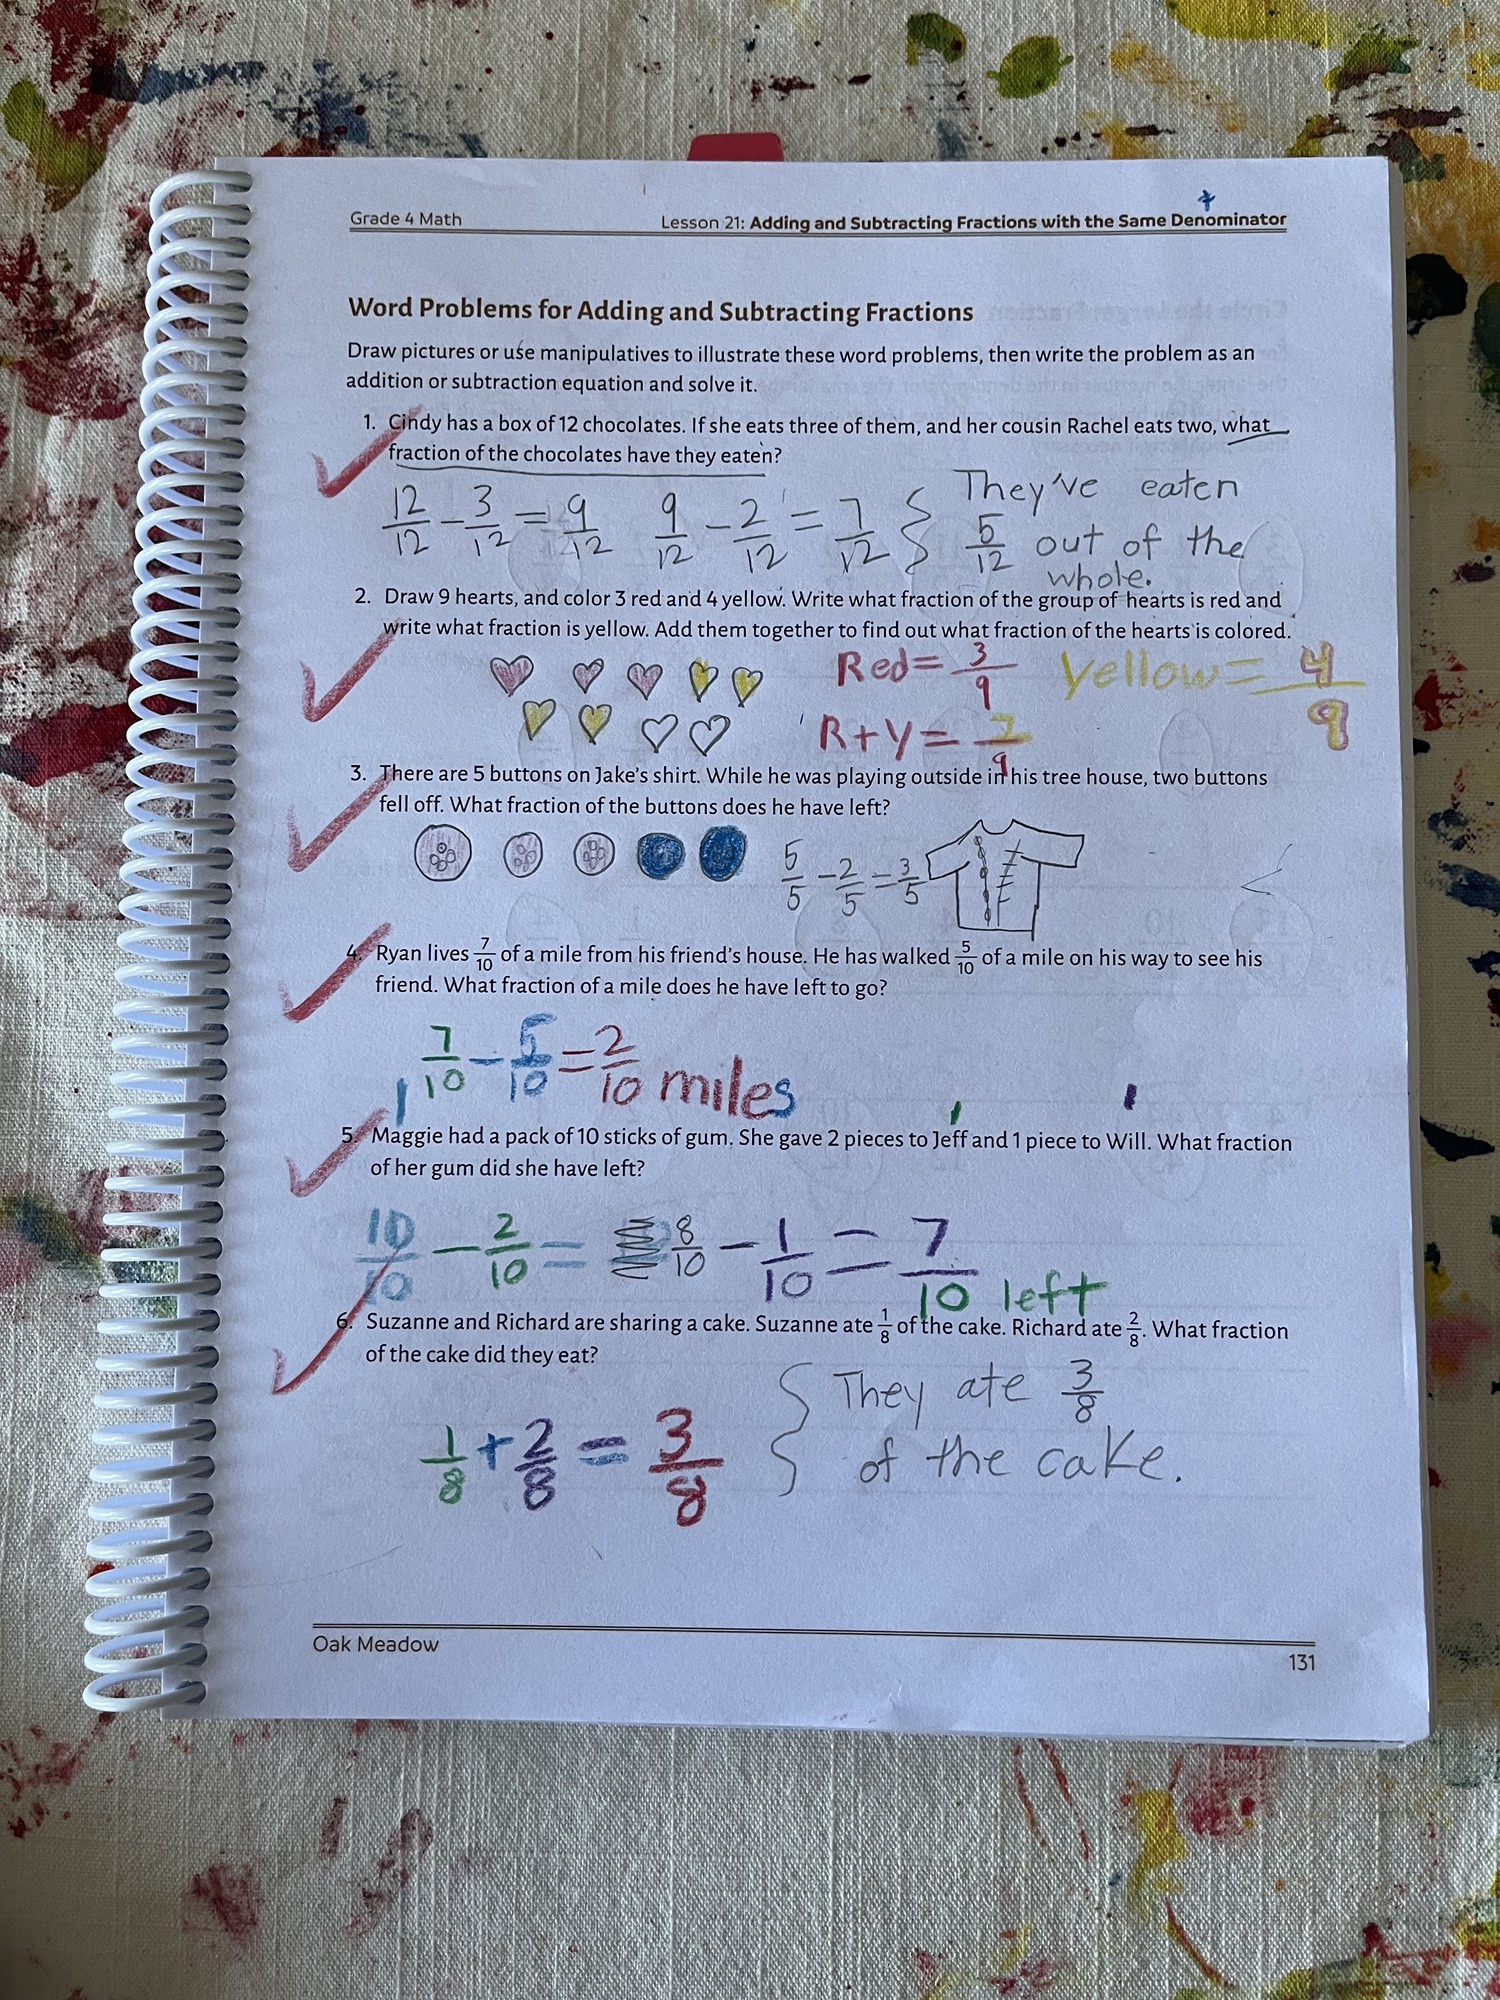 Grade 4 Math
Lesson 21: Adding and Subtracting Fractions with the Same Denominator
Word Problems for Adding and Subtracting Fractions
Draw pictures or use manipulatives to illustrate these word problems, then write the problem as an
addition or subtraction equation and solve it.
1. Cindy has a box of 12 chocolates. If she eats three of them, and her cousin Rachel eats two, what
fraction of the chocolates have they eaten?
12/12 - 3/12 = 9/12 9/12 - 2/12 = 7/12 } They've eaten
5/12 out of the
whole.
2. Draw 9 hearts, and color 3 red and 4 yellow. Write what fraction of the group of hearts is red and
write what fraction is yellow. Add them together to find out what fraction of the hearts is colored.
Red = 3/9 Yellow = 4/9
R+Y = 7/9
3. There are 5 buttons on Jake's shirt. While he was playing outside in his tree house, two buttons
fell off. What fraction of the buttons does he have left?
5/5 - 2/5 = 3/5
4. Ryan lives 7/10 of a mile from his friend's house. He has walked 5/10 of a mile on his way to see his
friend. What fraction of a mile does he have left to go?
7/10 - 5/10 = 2/10 miles
5. Maggie had a pack of 10 sticks of gum. She gave 2 pieces to Jeff and 1 piece to Will. What fraction
of her gum did she have left?
10/10 - 2/10 = 8/10 - 1/10 = 7/10 left
6. Suzanne and Richard are sharing a cake. Suzanne ate 1/8 of the cake. Richard ate 2/8. What fraction
of the cake did they eat?
1/8 + 2/8 = 3/8 } They ate 3/8
of the cake.
Oak Meadow
131